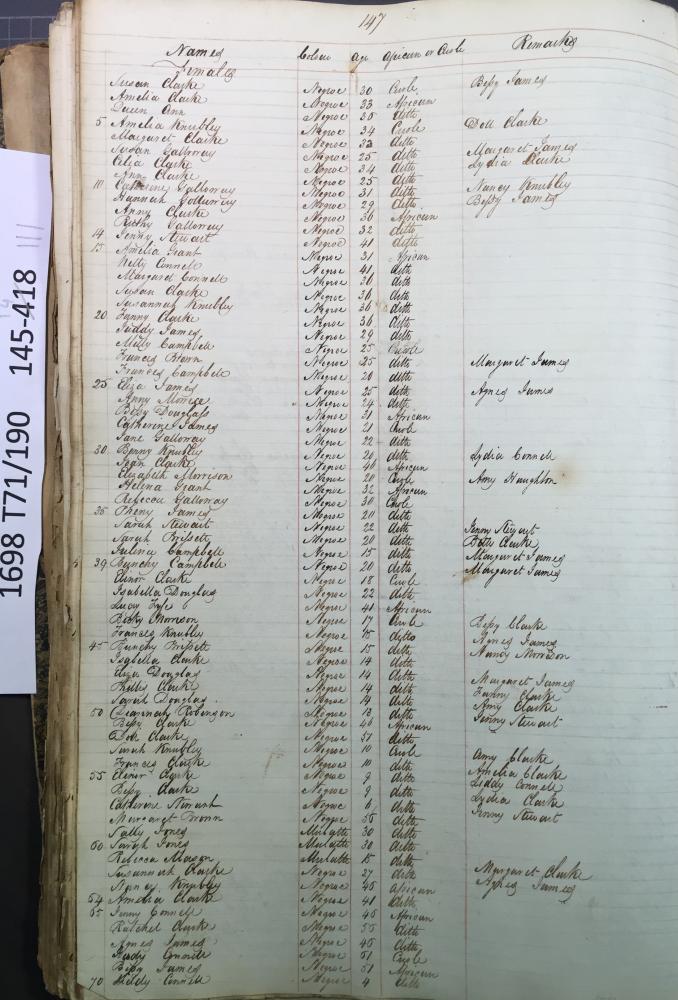 147
Names Colour Age African or Creole Remarks
Females
Susan Clarke Negroe 30 Creole Bessy James
Amelia Clarke Negroe 33 African
Queen Ann Negroe 35 ditto
5 Amelia Knubley Negroe 34 Creole Doll Clarke
Margaret Clarke Negroe 33 ditto
Susan Galloway Negroe 25 ditto Margaret James
Celia Clarke Negroe 34 ditto Lydia Clarke
Ann Clarke Negroe 25 ditto
10 Catherine Galloway Negroe 31 ditto Nancy Knubley
Hannah Galloway Negroe 29 ditto Bessy James
Anny Clarke Negroe 36 African
Galloway Negroe 32 ditto
14 Jenny Stewart Negroe 41 ditto
15 Amelia Grant Negroe 31 African
Kitty Connell Negroe 41 ditto
Margaret Connell Negroe 36 ditto
Susan Clarke Negroe 36 ditto
Susannah Knubley Negroe 36 ditto
20 Fanny Clarke Negroe 36 ditto
Juddy James Negroe 29 ditto
Milly Campbell Negroe 25 Creole
Frances Brown Negroe 35 ditto Margaret James
Frances Campbell Negroe 20 ditto
25 Eliza James Negroe 25 ditto Agnes James
Anny Morrice Negroe 24 ditto
Betsy Douglass Negroe 31 African
Catherine James Negroe 21 Creole
Jane Galloway Negroe 22 ditto
30 Benny Knubley Negroe 20 ditto Lydia Connell
Jean Clarke Negroe 40 African
Elizabeth Morrison Negroe 20 Creole Amy Haughton
Helena Grant Negroe 32 African
Rebecca Galloway Negroe 30 Creole
35 Pheny James Negroe 20 ditto
Sarah Stewart Negroe 22 ditto Jenny Stewart
Sarah Brissett Negroe 20 ditto Clarke
Julina Campbell Negroe 15 ditto Margaret James
39 Bunchy Campbell Negroe 20 ditto Margaret James
Elinor Clarke Negroe 18 Creole
Isabella Douglas Negroe 22 ditto
Lucy Fyfe Negroe 41 African
Morrison Negroe 17 Creole Bessy Clarke
Frances Knubley Negroe 15 ditto Agnes James
45 Bunchy Brissett Negroe 15 ditto Nancy Morrison
Isabella Clarke Negroe 14 ditto
Eliza Douglas Negroe 14 ditto Margaret James
Phillis Clarke Negroe 14 ditto Fanny Clarke
Sarah Douglas Negroe 14 ditto Amy Clarke
50 Robinson Negroe 13 ditto Jenny Stewart
Bessy Clarke Negroe 46 African
Doll Clarke Negroe 51 ditto
Sarah Knubley Negroe 10 Creole Amy Clarke
Frances Clarke Negroe 10 ditto Amelia Clarke
55 Elinor Clarke Negroe 9 ditto Liddy Connell
Bessy Clarke Negroe 9 ditto Lydia Clarke
Catherine Stewart Negroe 6 ditto Jenny Stewart
Margaret Brown Negroe 55 ditto
Sally Jones Mulatto 30 ditto
60 Sarah Jones Mulatto 30 ditto
Rebecca Mason Mulatto 15 ditto
Susannah Clarke Negroe 27 ditto Margaret Clarke
Nancy Knubley Negroe 45 African Agnes James
64 Amelia Clarke Negroe 41 ditto
65 Jenny Connell Negroe 45 African
Ratchel Clarke Negroe 55 ditto
Agnes James Negroe 45 ditto
Judy Connell Negroe 51 Creole
Bessy James Negroe 51 African
70 Connell Negroe 4 ditto
1698 T71/190 145-418